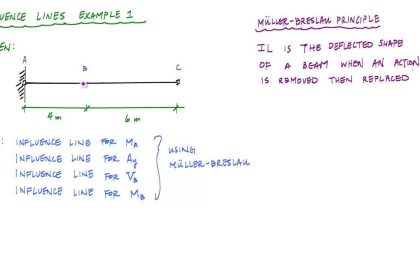 FLUENCE LINES EXAMPLE 1
EN:
A
B
C
4 m
6 m
: INFLUENCE LINE FOR MA
INFLUENCE LINE FOR Ay
INFLUENCE LINE FOR VB
INFLUENCE LINE FOR MB
USING
MÜLLER-BRESLAU
MÜLLER-BRESLAU PRINCIPLE
IL IS THE DEFLECTED SHAPE
OF A BEAM WHEN AN ACTION
IS REMOVED THEN REPLACED